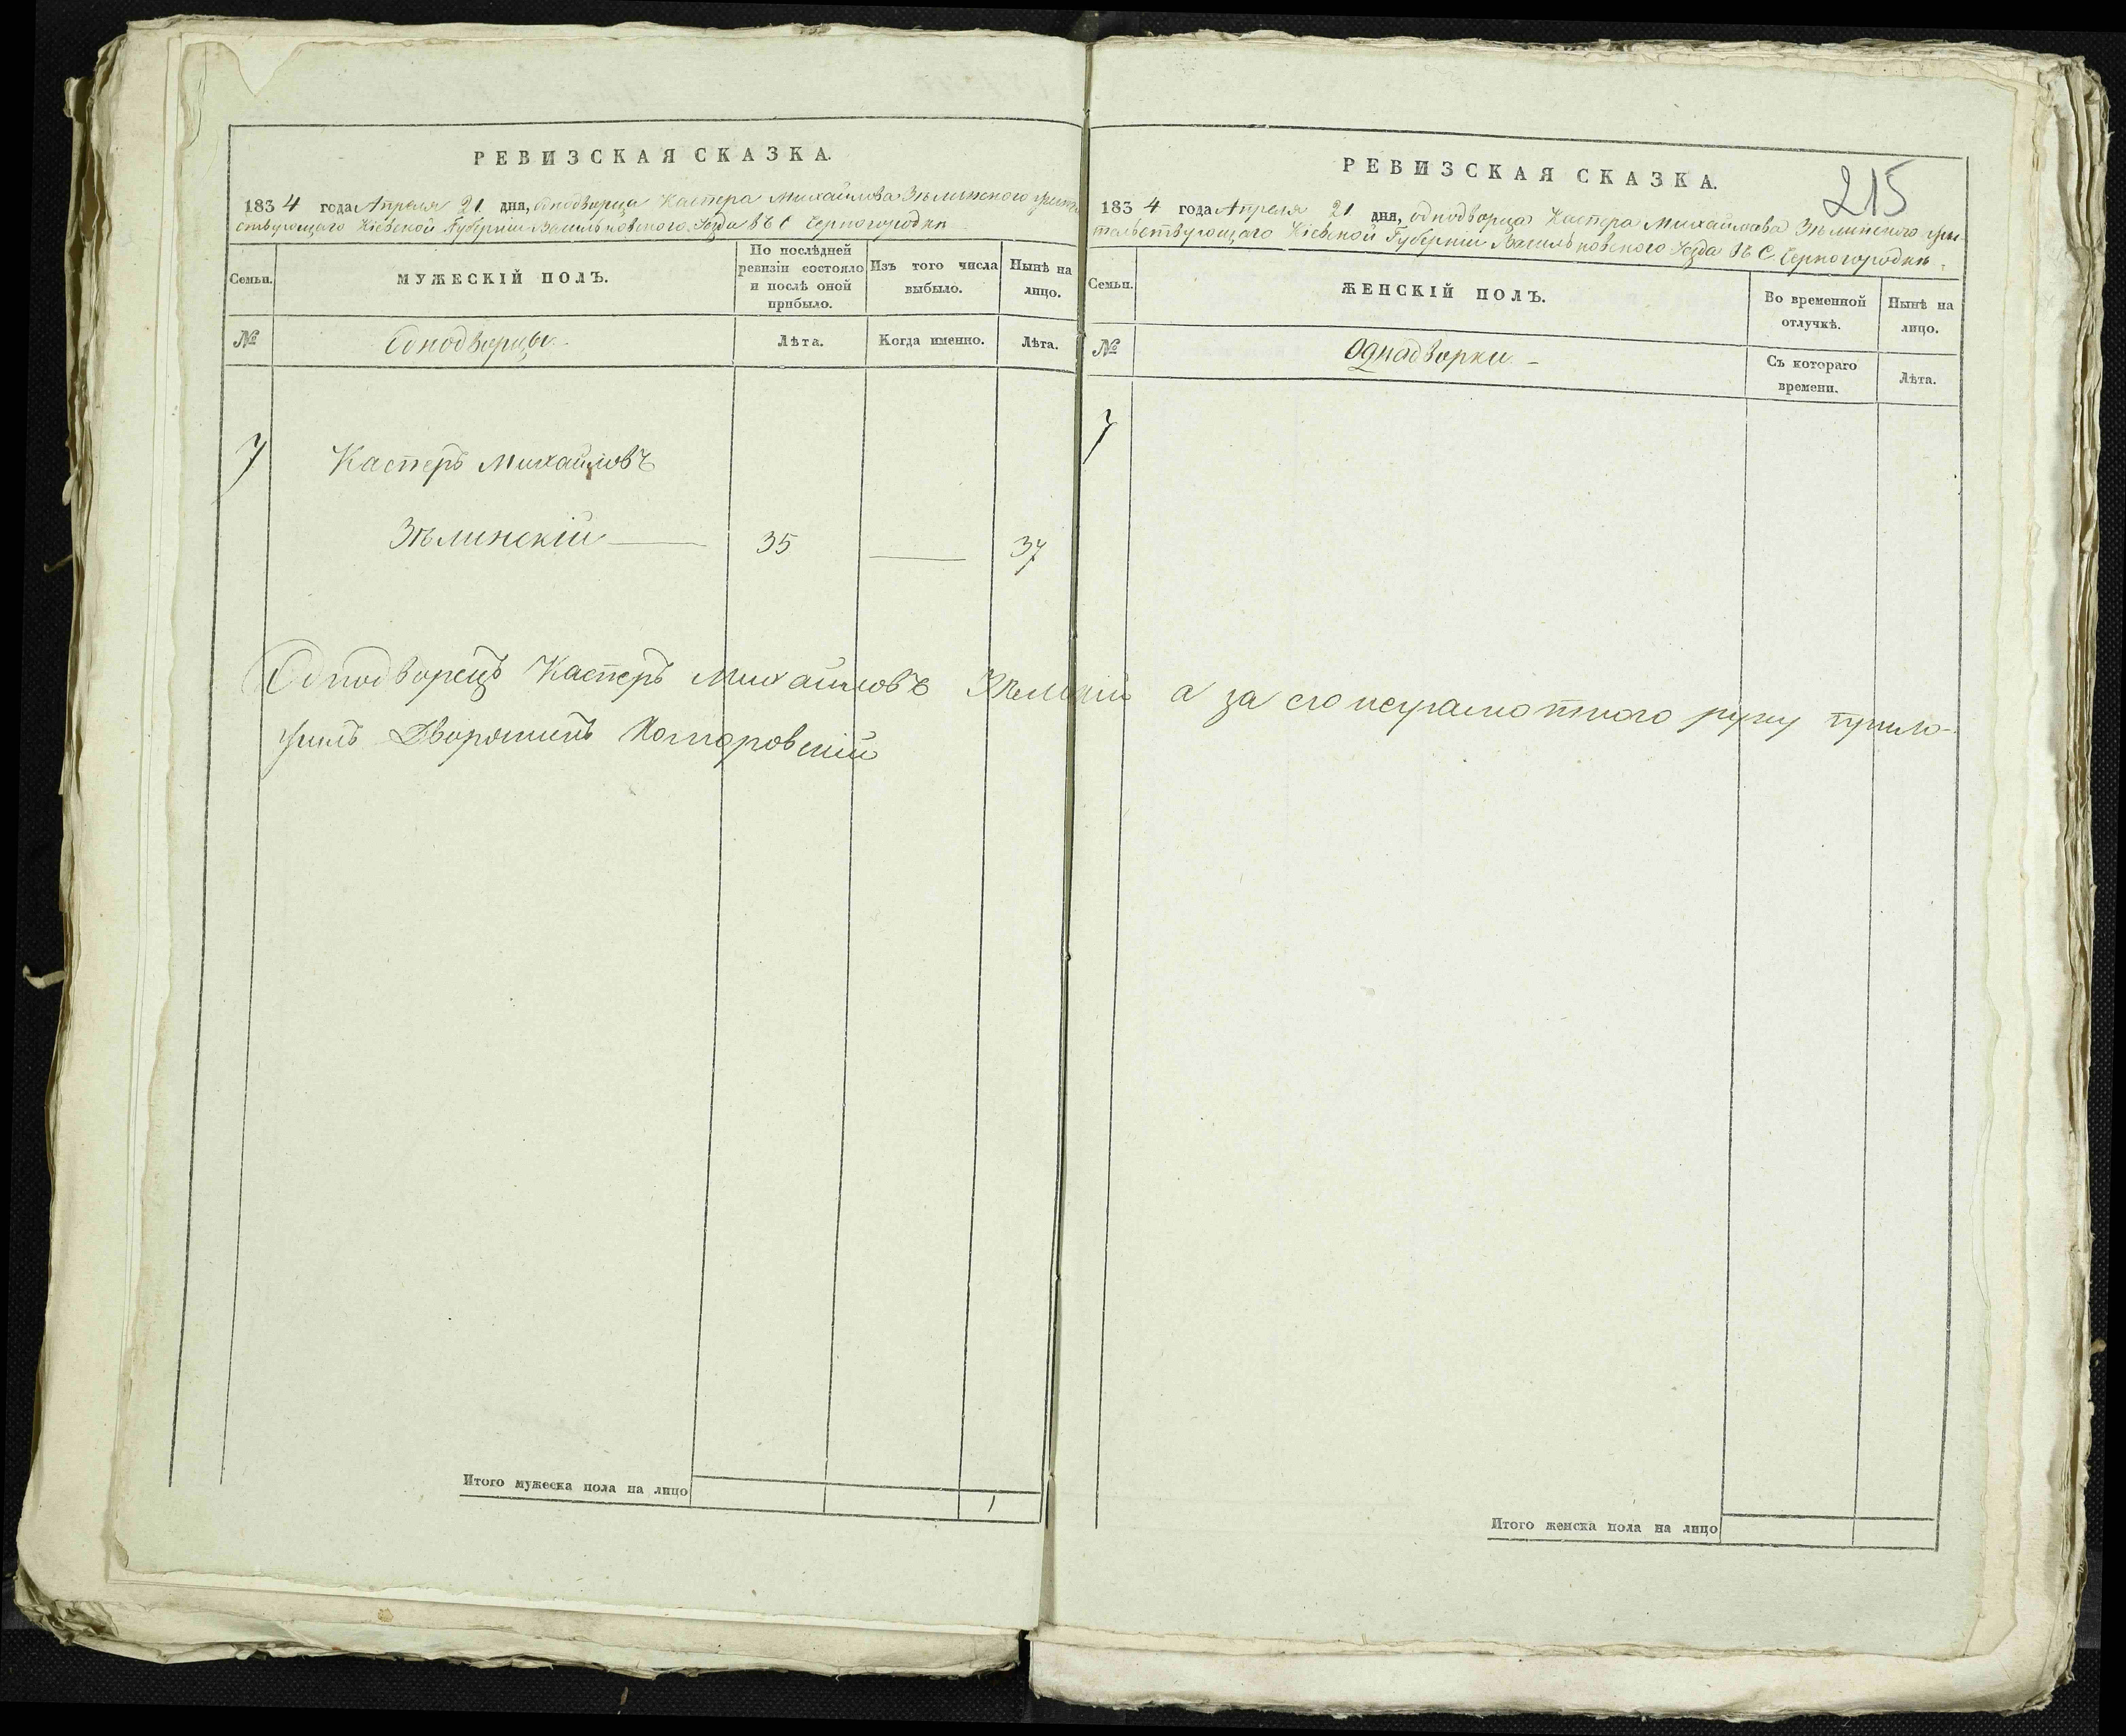 РЕВИЗСКАЯ СКАЗКА.
1834 года Апреля 21 дня, однодворца Каспера Михайлова Зѣлинского жител
ствующаго Кіевской Губерніи Васильковского Уезда въ С Черногородки
Семьи.
МУЖЕСКІЙ ПОЛЪ.
По послѣдней
ревизіи состояло
и послѣ оной
прибыло.
Изъ того числа
выбыло.
Нынѣ на
лицо.
№
Однодворцы
Лѣта.
Когда именно.
Лѣта.
7
Касперъ Михайловъ
Зѣлинскій
35
37
Однодворецъ Касперъ Михайловъ Зѣлинскій а за его неграмотного руку прило-
жилъ Дворянинъ Комаровскій
Итого мужеска пола на лицо
1
РЕВИЗСКАЯ СКАЗКА.
215
1834 года Апреля 21 дня, однодворца Каспера Михайлова Зѣлинского жи-
тельствующаго Кіевской Губерніи Васильковского Уезда въ С. Черногородки
Семьи.
ЖЕНСКІЙ ПОЛЪ.
Во временной
отлучкѣ.
Нынѣ на
лицо.
№
Однадворки
Съ котораго
времени.
Лѣта.
7
Итого женска пола на лицо